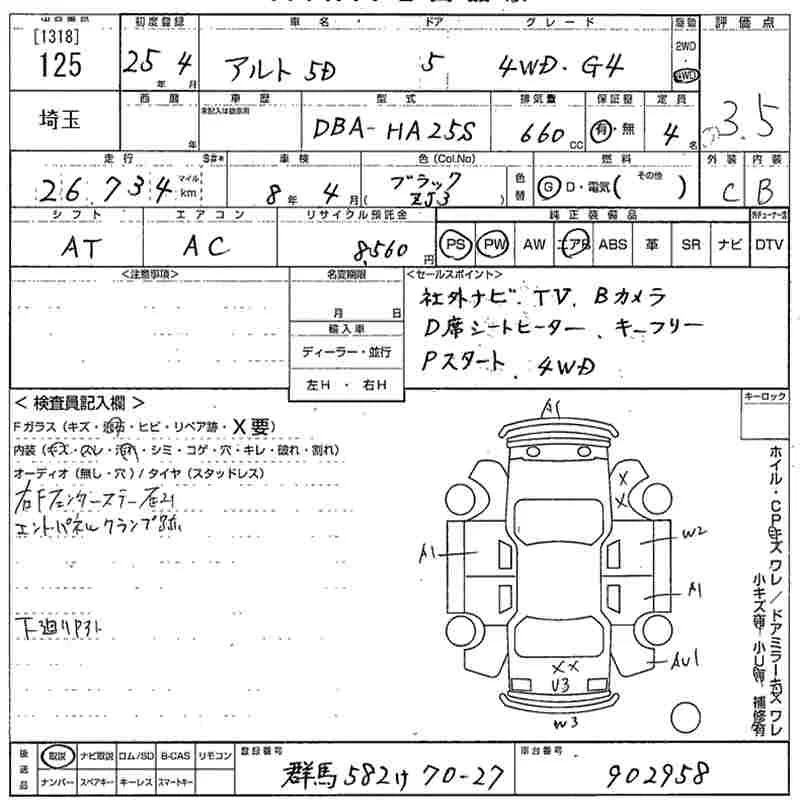 [1318]
125
初度登録
25 年 4 月
車名 ドア グレード
アルト 5D 5 4WD・G4
駆動
2WD
4WD
評価点
3.5
埼玉
西暦 年
車歴
未記入は自家用
型式
DBA-HA25S
排気量
660 cc
保証書
有・無
定員
4 名
走行 S#*
26,734 マイル km
車検
8 年 4 月
色 (Col.No)
ブラック
( ZJ3 )
色替
燃料
G D・電気 ( その他 )
外装 内装
C B
シフト
AT
エアコン
AC
リサイクル預託金
8,560 円
純正装備品
PS PW AW エアB ABS 革 SR ナビ DTV
<注意事項>
名変期限
月 日
輸入車
ディーラー・並行
左H ・ 右H
<セールスポイント>
社外ナビ、TV、Bカメラ
D席シートヒーター、キーフリー
Pスタート、4WD
キーロック
<検査員記入欄>
Fガラス (キズ・飛石・ヒビ・リペア跡・X要)
内装 (キズ・スレ・汚れ・シミ・コゲ・穴・キレ・破れ・割れ)
オーディオ (無し・穴) / タイヤ (スタッドレス)
エンドパネルクランプ跡
下廻りサビ
A1
A1
W2
A1
AU1
XX
U3
W3
X
X
ホイル・CPキズ ワレ／ドアミラーキズ ワレ
小キズ有 小U有 補修有
後送品
取説 ナビ取説 ロム/SD B-CAS リモコン
ナンバー スペアキー キーレス スマートキー
登録番号
群馬 582 け 70-27
車台番号
902958